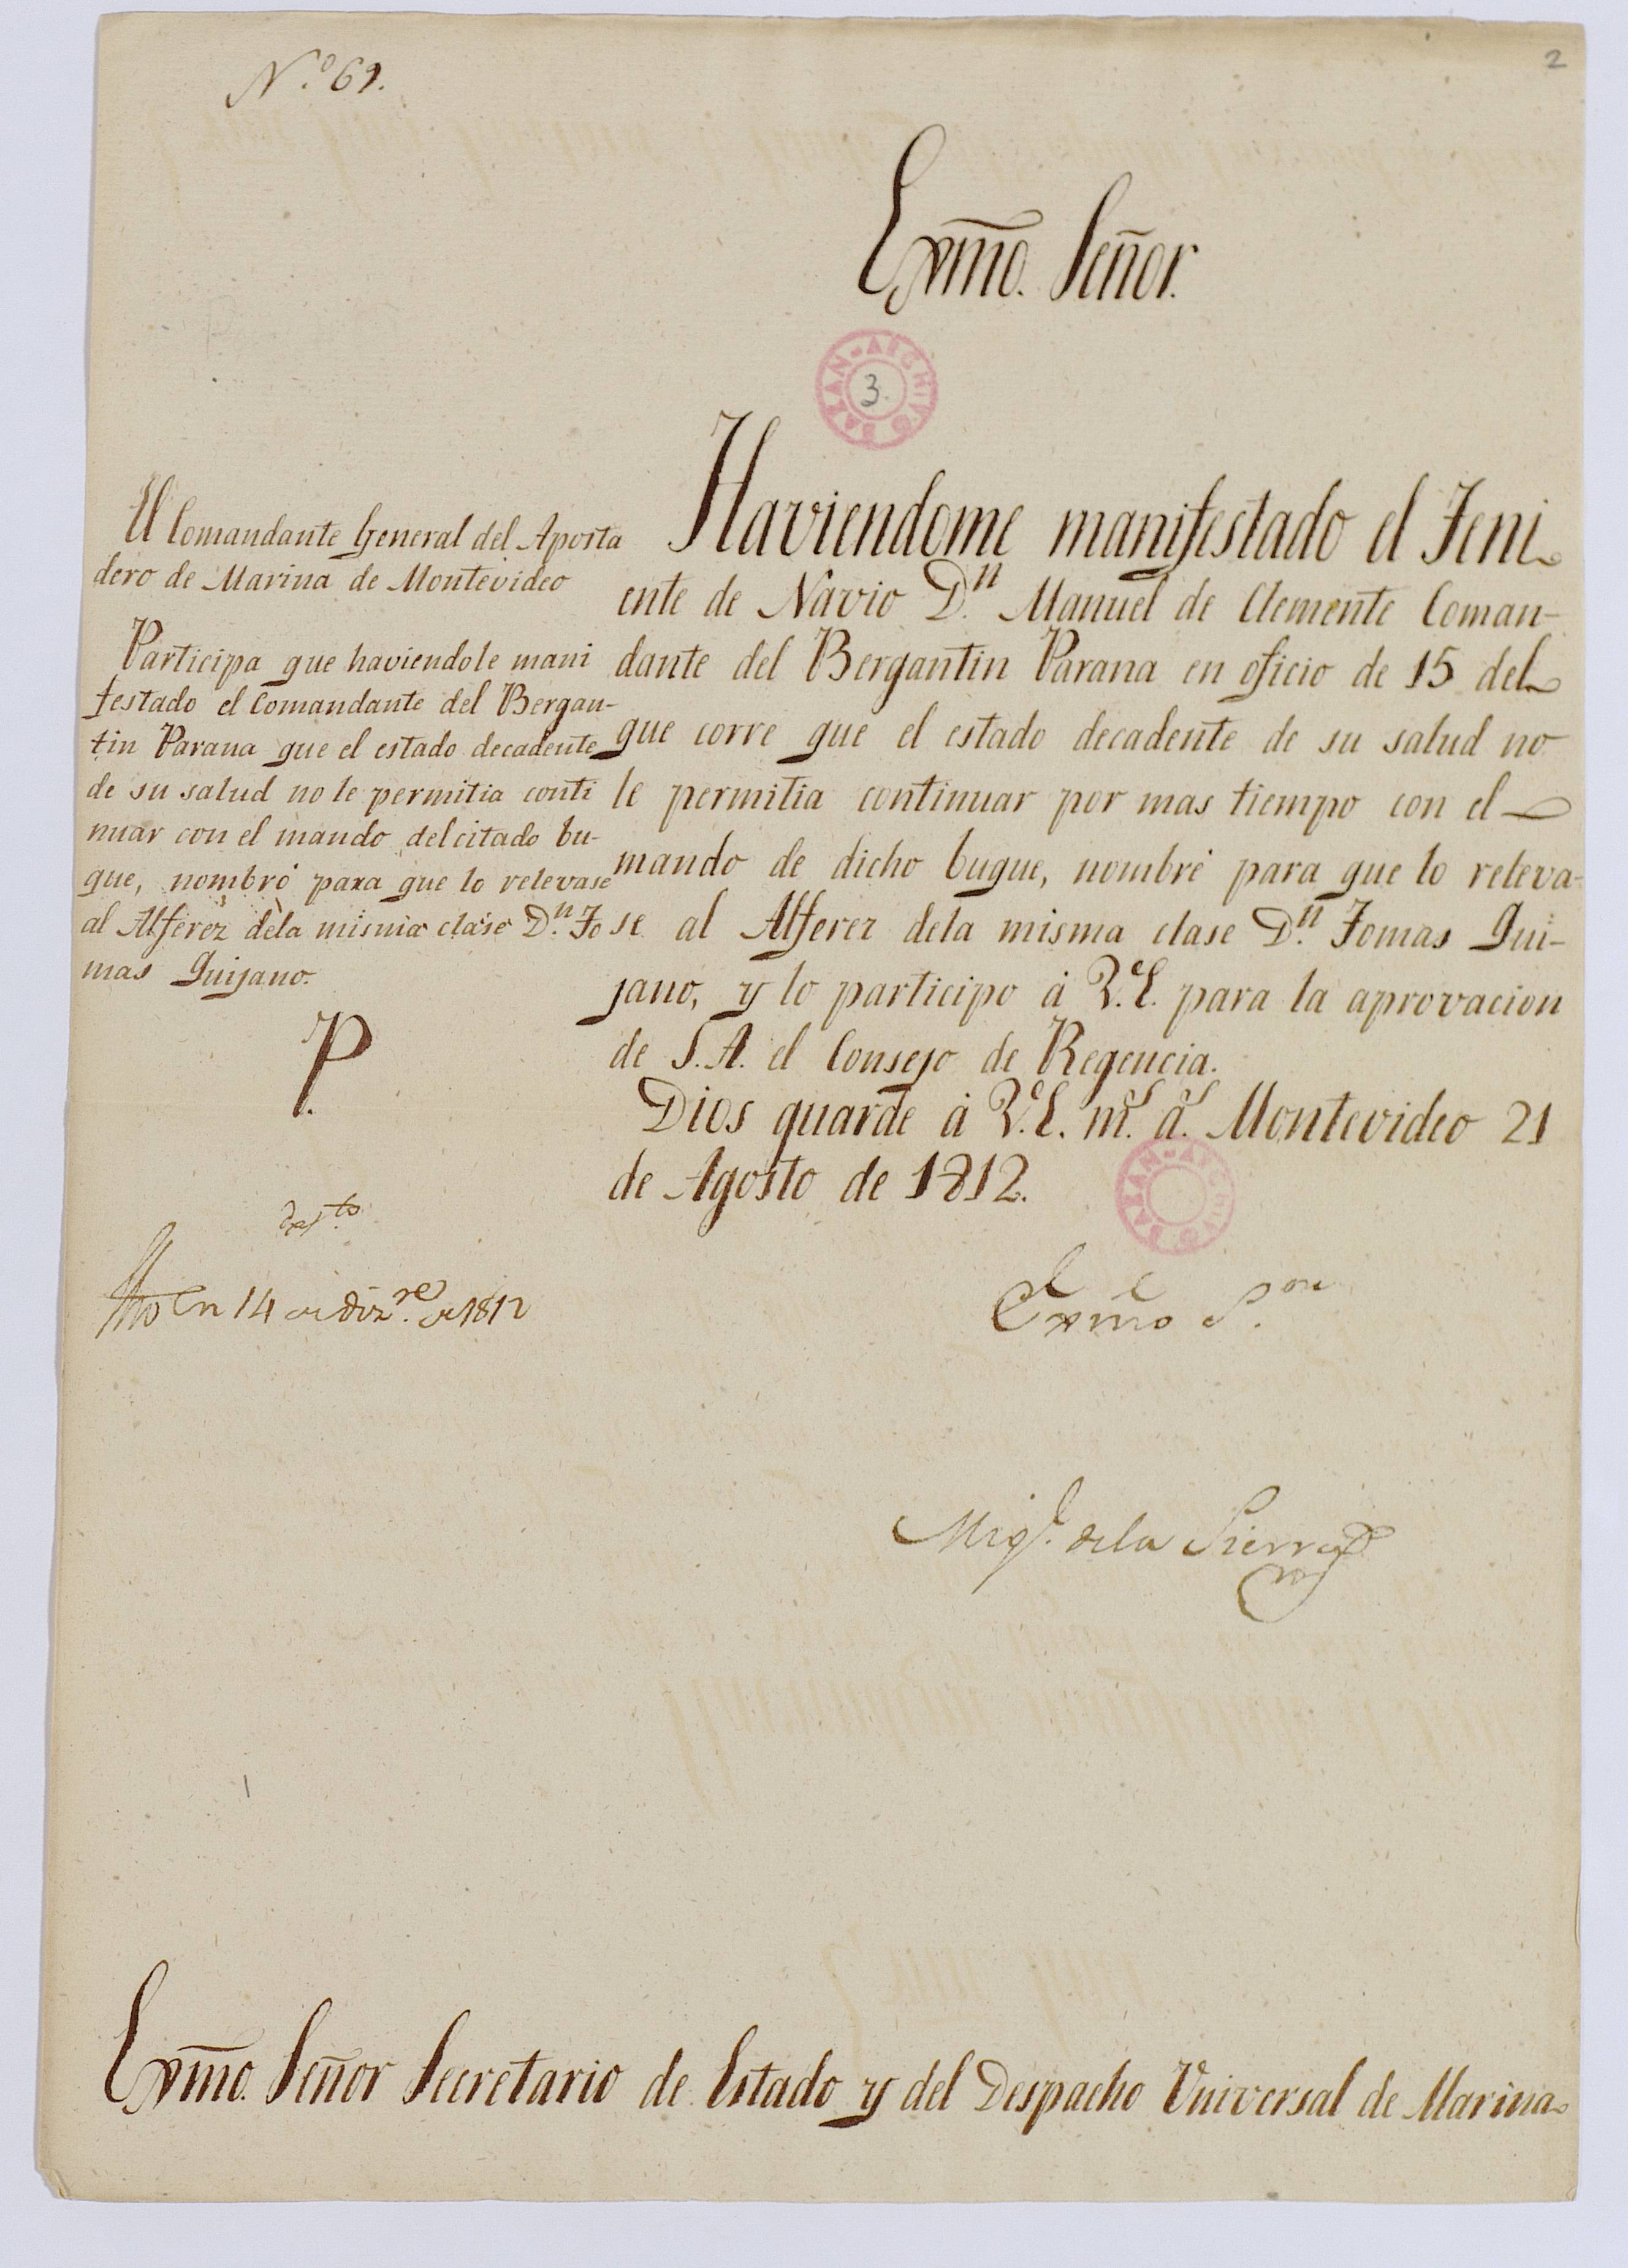 N.º 69.
2
Exm̃o. Señor.
BAZAN-ARCHIVO
3.
El Comandante General del Aposta
dero de Marina de Montevideo
Participa que haviendole mani
festado el Comandante del Bergan-
tin Parana que el estado decadente
de su salud no le permitia conti
nuar con el mando del citado bu-
que, nombró para que lo relevase
al Alferez dela misma clase D.n To
mas Quijano.
P.
Haviendome manifestado el Teni
ente de Navio D.n Manuel de Clemente Coman-
dante del Bergantin Parana en oficio de 15 del
que corre que el estado decadente de su salud no
le permitia continuar por mas tiempo con el
mando de dicho buque, nombré para que lo releva-
se al Alferez dela misma clase D.n Tomas Qui-
jano, y lo participo á V.E. para la aprovacion
de S.A. el Consejo de Regencia.
Dios guarde á V.E. m.s a.s Montevideo 21
de Agosto de 1812.
BAZAN-ARCHIVO
En 14 de diz.re de 1812
Exmo S.or
Mig.l dela Sierra
Exm̃o. Señor Secretario de Estado y del Despacho Universal de Marina